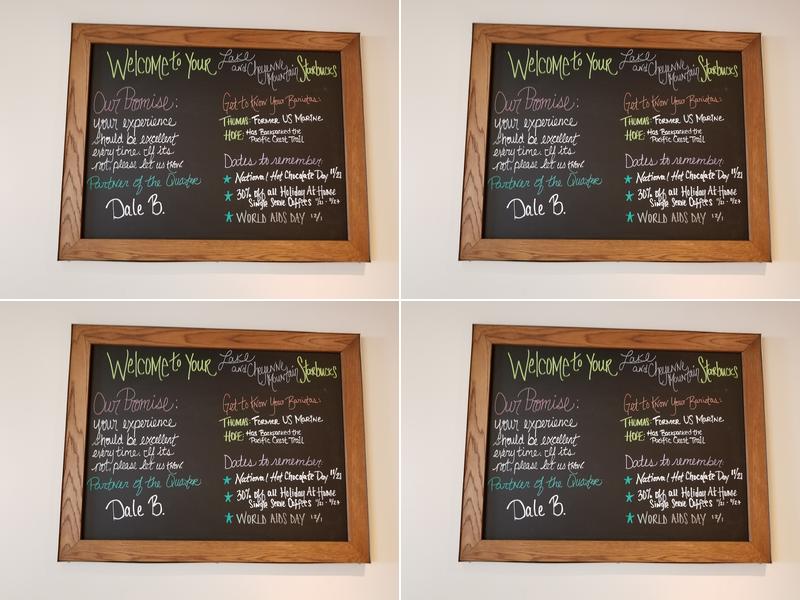 Welcome to Your Lake and Cheyenne Mountain Starbucks
Our Promise:
your experience
should be excellent
every time. If its
not, please let us know
Partner of the Quarter
Dale B.
Get to Know Your Baristas:
Thomas: Former US Marine
Hope: Has Backpacked the
Pacific Crest Trail
Dates to remember:
★ National Hot Chocolate Day 11/21
★ 30% off all Holiday At Home
Single Serve Coffees
★ World AIDS Day 12/1
Welcome to Your Lake and Cheyenne Mountain Starbucks
Our Promise:
your experience
should be excellent
every time. If its
not, please let us know
Partner of the Quarter
Dale B.
Get to Know Your Baristas:
Thomas: Former US Marine
Hope: Has Backpacked the
Pacific Crest Trail
Dates to remember:
★ National Hot Chocolate Day 11/21
★ 30% off all Holiday At Home
Single Serve Coffees
★ World AIDS Day 12/1
Welcome to Your Lake and Cheyenne Mountain Starbucks
Our Promise:
your experience
should be excellent
every time. If its
not, please let us know
Partner of the Quarter
Dale B.
Get to Know Your Baristas:
Thomas: Former US Marine
Hope: Has Backpacked the
Pacific Crest Trail
Dates to remember:
★ National Hot Chocolate Day 11/21
★ 30% off all Holiday At Home
Single Serve Coffees
★ World AIDS Day 12/1
Welcome to Your Lake and Cheyenne Mountain Starbucks
Our Promise:
your experience
should be excellent
every time. If its
not, please let us know
Partner of the Quarter
Dale B.
Get to Know Your Baristas:
Thomas: Former US Marine
Hope: Has Backpacked the
Pacific Crest Trail
Dates to remember:
★ National Hot Chocolate Day 11/21
★ 30% off all Holiday At Home
Single Serve Coffees
★ World AIDS Day 12/1